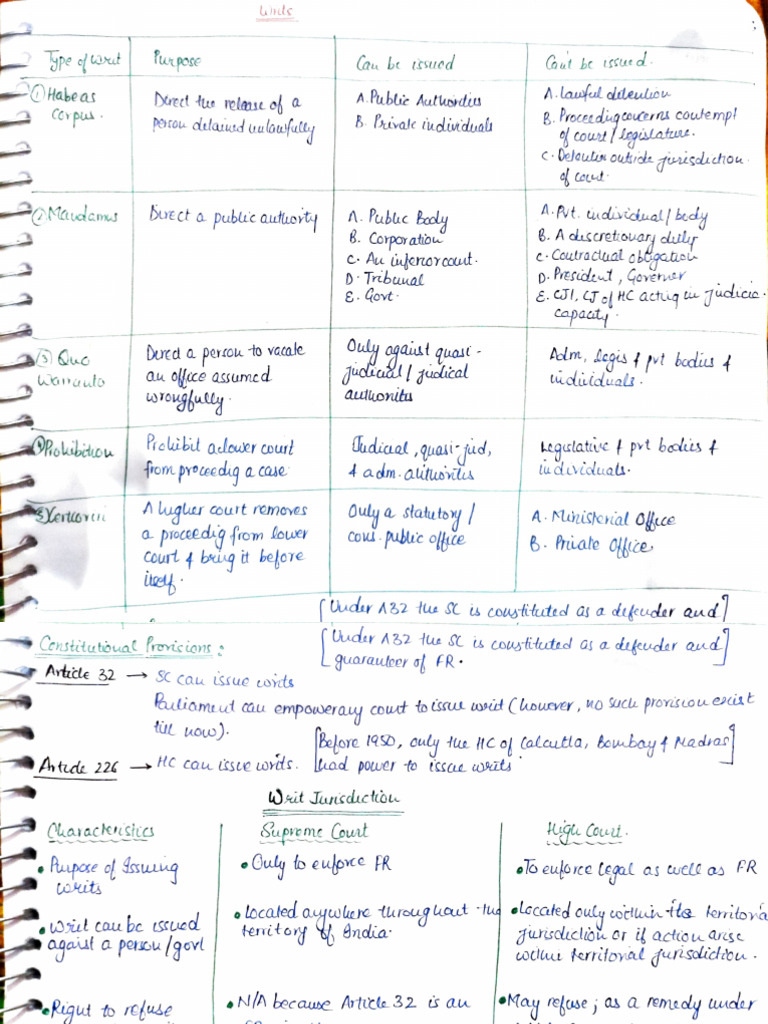 Writs
Type of Writ
Purpose
Can be issued
Can't be issued.
① Habeas
corpus.
Direct the release of a
person detained unlawfully
A. Public Authorities
B. Private individuals
A. Lawful detention
B. Proceeding concerns contempt
of court/legislature.
C. Detention outside jurisdiction
of court.
② Mandamus
Direct a public authority
A. Public Body
B. Corporation
C. An inferior court.
D. Tribunal
E. Govt.
A. Pvt. individual/body
B. A discretionary duty
C. Contractual obligation
D. President, Governer
E. CJI, CJ of HC acting in judicia
capacity.
③ Quo
Warranto
Direct a person to vacate
an office assumed
wrongfully.
Only against quasi-
judicial / judical
authorities
Adm, legis & pvt bodies &
individuals.
④ Prohibition
Prohibit a lower court
from proceedig a case
Judicial, quasi-jud,
& adm. authorities
Legislative & pvt bodies &
individuals.
⑤ Certiorari
A higher court removes
a proceedig from lower
court & bring it before
itself.
Only a statutory /
cons. public office
A. Ministerial Office
B. Private Office
[Under A32 the SC is constituted as a defender and]
Constitutional Provisions:
[Under A32 the SC is constituted as a defender and
guaranteer of FR.]
Article 32 → SC can issue writs
Parliament can empower any court to issue writ (however, no such provision exist
till now).
[Before 1950, only the HC of Calcutta, Bombay & Madras
had power to issue writs]
Article 226 → HC can issue writs.
Writ Jurisdiction
Characteristics
Supreme Court
High Court.
• Purpose of Issuing
writs
• Only to enforce FR
• To enforce legal as well as FR
• Writ can be issued
agaist a person/govt
• Located anywhere throughout the
territory of India.
• Located only within its territoria
jurisdiction or if action arise
within territorial jurisdiction.
• Right to refuse
• N/A because Article 32 is an
• May refuse; as a remedy under